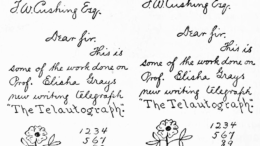 J.W. Cushing Esq.
Dear Sir.
This is
some of the work done on
Prof. Elisha Grays
new writing Telegraph
"The Telautograph."
1234
567
89
J.W. Cushing Esq.
Dear Sir.
This is
some of the work done on
Prof. Elisha Grays
new writing Telegraph
"The Telautograph."
1234
567
89